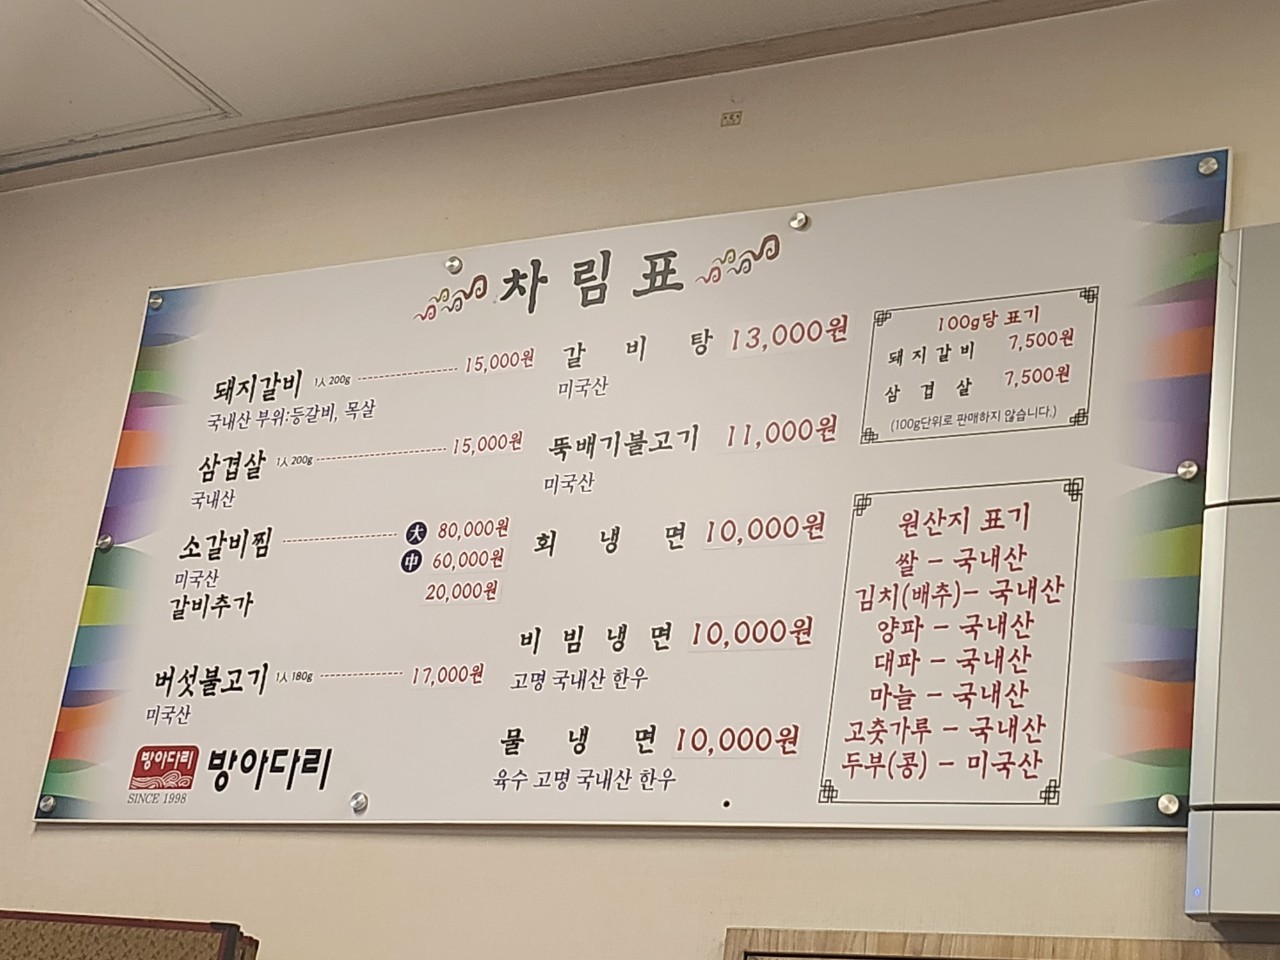 차림표
돼지갈비 1人 200g 15,000원
국내산 부위:등갈비, 목살
삼겹살 1人 200g 15,000원
국내산
소갈비찜 大 80,000원
미국산 中 60,000원
갈비추가 20,000원
버섯불고기 1人 180g 17,000원
미국산
방아다리 방아다리
SINCE 1998
갈비탕 13,000원
미국산
뚝배기불고기 11,000원
미국산
회냉면 10,000원
비빔냉면 10,000원
고명 국내산 한우
물냉면 10,000원
육수 고명 국내산 한우
100g당 표기
돼지갈비 7,500원
삼겹살 7,500원
(100g단위로 판매하지 않습니다.)
원산지 표기
쌀 – 국내산
김치(배추)– 국내산
양파 – 국내산
대파 – 국내산
마늘 – 국내산
고춧가루 – 국내산
두부(콩) – 미국산